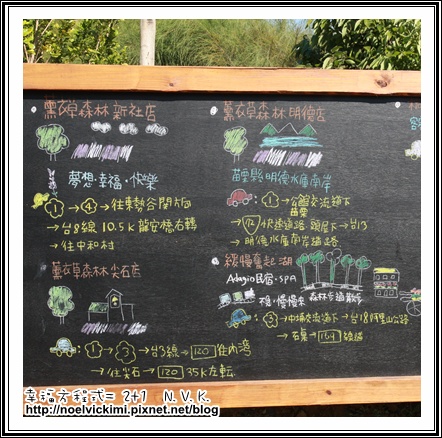 薰衣草森林 新社店
夢想·幸福·快樂
① → ④ → 往東勢谷關方向
→ 台8線 10.5K 龍安橋右轉
→ 往中和村
薰衣草森林 尖石店
① → ③ → 台3線 → 120 往內灣
→ 往尖石 → 120 35K左転
薰衣草森林 明德店
苗栗縣明德水庫南岸
① → 公館交流道下
苗栗
→ 72 快速道路 頭屋下 → 台13
→ 明德水庫南岸道路
緩慢奮起湖
Adagio民宿·SPA
不急,慢慢來
森林步道散步
③ → 中埔交流道下 → 台18阿里山公路
→ 石桌 → 169 縣道
幸福方程式= 2+1 N.V.K.
http://noelvickimi.pixnet.net/blog